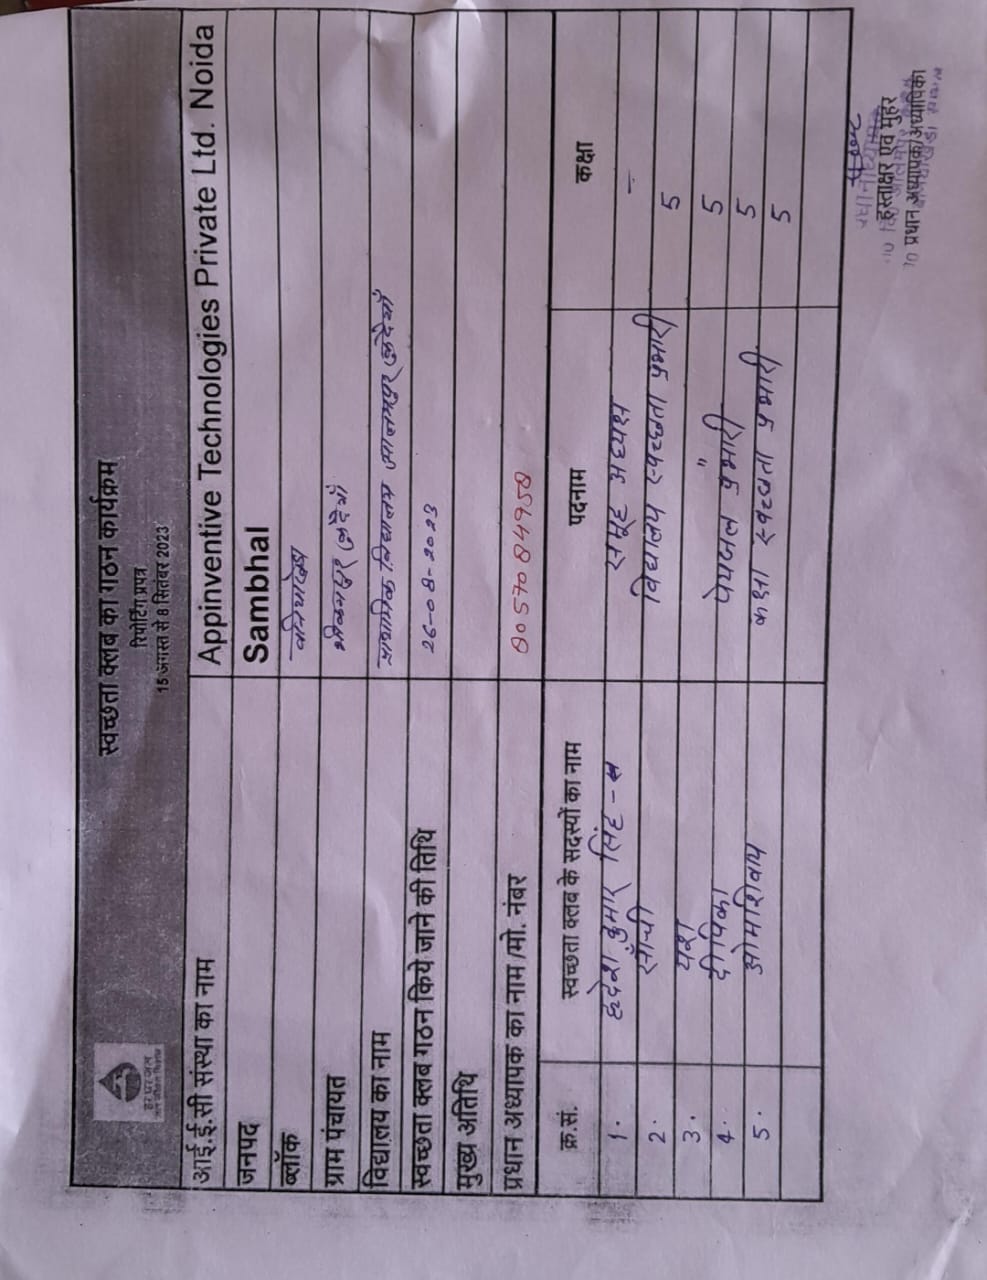 स्वच्छता क्लब का गठन कार्यक्रम
रिपोर्टिंग प्रपत्र
15 अगस्त से 8 सितंबर 2023
हर घर जल
जल जीवन मिशन
आई.ई.सी संस्था का नाम Appinventive Technologies Private Ltd. Noida
जनपद Sambhal
ब्लॉक बनियाखेड़ा
ग्राम पंचायत
विद्यालय का नाम प्राथमिक विद्यालय
स्वच्छता क्लब गठन किये जाने की तिथि 26-08-2023
मुख्य अतिथि
प्रधान अध्यापक का नाम/मो. नंबर 8057084958
क्र.सं. स्वच्छता क्लब के सदस्यों का नाम पदनाम कक्षा
1. हृदेश कुमार सिंह समूह अध्यक्ष –
2. साची विद्यालय स्वच्छता प्रभारी 5
3. यश " 5
4. दीपिका पेयजल प्रभारी 5
5. ओमशिवाय कक्षा स्वच्छता प्रभारी 5
हस्ताक्षर एवं मुहर
प्रधान अध्यापक/अध्यापिका